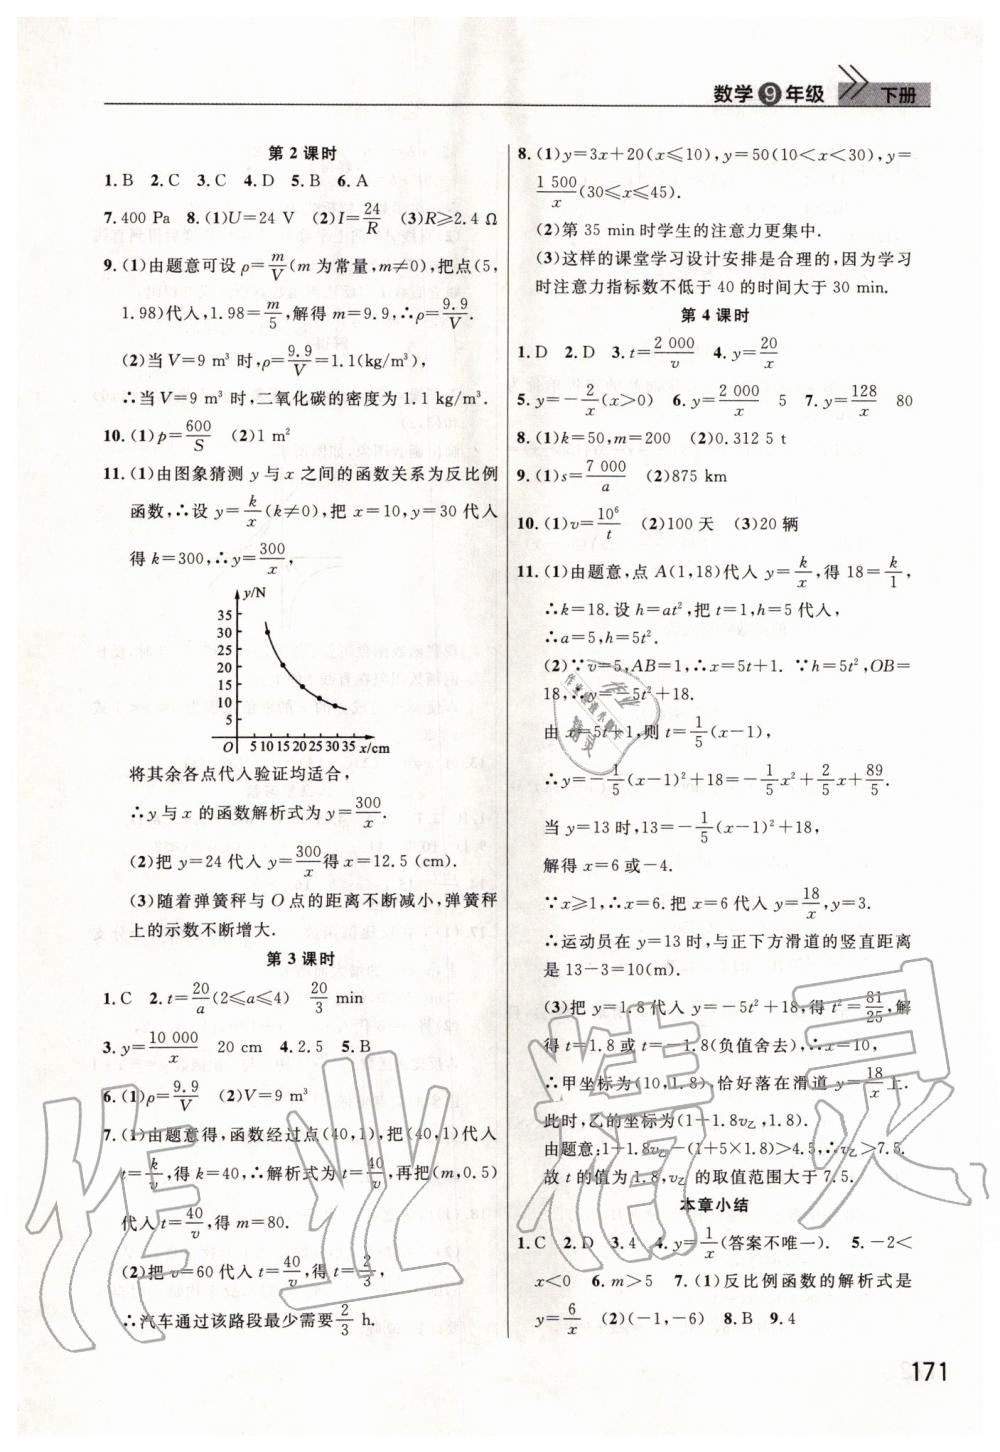 数学9年级
下册
第2课时
1.B 2.C 3.C 4.D 5.B 6.A
7.400 Pa 8.(1)U=24 V (2)I=24/R (3)R⩾2.4 Ω
9.(1)由题意可设 ρ=m/V(m 为常量,m≠0),把点(5,
1.98)代入,1.98=m/5,解得 m=9.9,∴ρ=9.9/V.
(2)当 V=9 m³ 时,ρ=9.9/V=1.1(kg/m³),
∴当 V=9 m³ 时,二氧化碳的密度为 1.1 kg/m³.
10.(1)p=600/S (2)1 m²
11.(1)由图象猜测 y 与 x 之间的函数关系为反比例
函数,∴设 y=k/x(k≠0),把 x=10,y=30 代入
得 k=300,∴y=300/x,
y/N
35
30
25
20
15
10
5
O 5 10 15 20 25 30 35 x/cm
将其余各点代入验证均适合,
∴y 与 x 的函数解析式为 y=300/x.
(2)把 y=24 代入 y=300/x得 x=12.5 (cm).
(3)随着弹簧秤与 O 点的距离不断减小,弹簧秤
上的示数不断增大.
第3课时
1.C 2.t=20/a(2⩽a⩽4) 20/3 min
3.y=10 000/x 20 cm 4.2.5 5.B
6.(1)ρ=9.9/V (2)V=9 m³
7.(1)由题意得,函数经过点(40,1),把(40,1)代入
t=k/v,得 k=40,∴解析式为 t=40/v,再把(m,0.5)
代入 t=40/v,得 m=80.
(2)把 v=60 代入 t=40/v,得 t=2/3,
∴汽车通过该路段最少需要 2/3 h.
8.(1)y=3x+20(x⩽10),y=50(10<x<30),y=
1 500/x(30⩽x⩽45).
(2)第 35 min 时学生的注意力更集中.
(3)这样的课堂学习设计安排是合理的,因为学习
时注意力指标数不低于 40 的时间大于 30 min.
第4课时
1.D 2.D 3.t=2 000/v 4.y=20/x
5.y=-2/x(x>0) 6.y=2 000/x 5 7.y=128/x 80
8.(1)k=50,m=200 (2)0.312 5 t
9.(1)s=7 000/a (2)875 km
10.(1)v=10⁶/t (2)100 天 (3)20 辆
11.(1)由题意,点 A(1,18)代入 y=k/x,得 18=k/1,
∴k=18.设 h=at²,把 t=1,h=5 代入,
∴a=5,h=5t².
(2)∵v=5,AB=1,∴x=5t+1. ∵h=5t²,OB=
18,∴y=-5t²+18.
由 x=5t+1,则 t=1/5(x-1),
∴y=-1/5(x-1)²+18=-1/5x²+2/5x+89/5.
当 y=13 时,13=-1/5(x-1)²+18,
解得 x=6或-4.
∵x⩾1,∴x=6.把 x=6 代入 y=18/x,y=3.
∴运动员在 y=13 时,与正下方滑道的竖直距离
是 13-3=10(m).
(3)把 y=1.8代入 y=-5t²+18,得 t²=81/25,解
得 t=1.8 或 t=-1.8(负值舍去),∴x=10,
∴甲坐标为(10,1.8),恰好落在滑道 y=18/x上.
此时,乙的坐标为(1+1.8v乙,1.8).
由题意:1+1.8v乙-(1+5×1.8)>4.5,∴v乙>7.5.
故 t 的值为 1.8,v乙 的取值范围大于 7.5.
本章小结
1.C 2.D 3.4 4.y=1/x(答案不唯一). 5.-2<
x<0 6.m>5 7.(1)反比例函数的解析式是
y=6/x (2)(-1,-6) 8.B 9.4
171
作业精灵